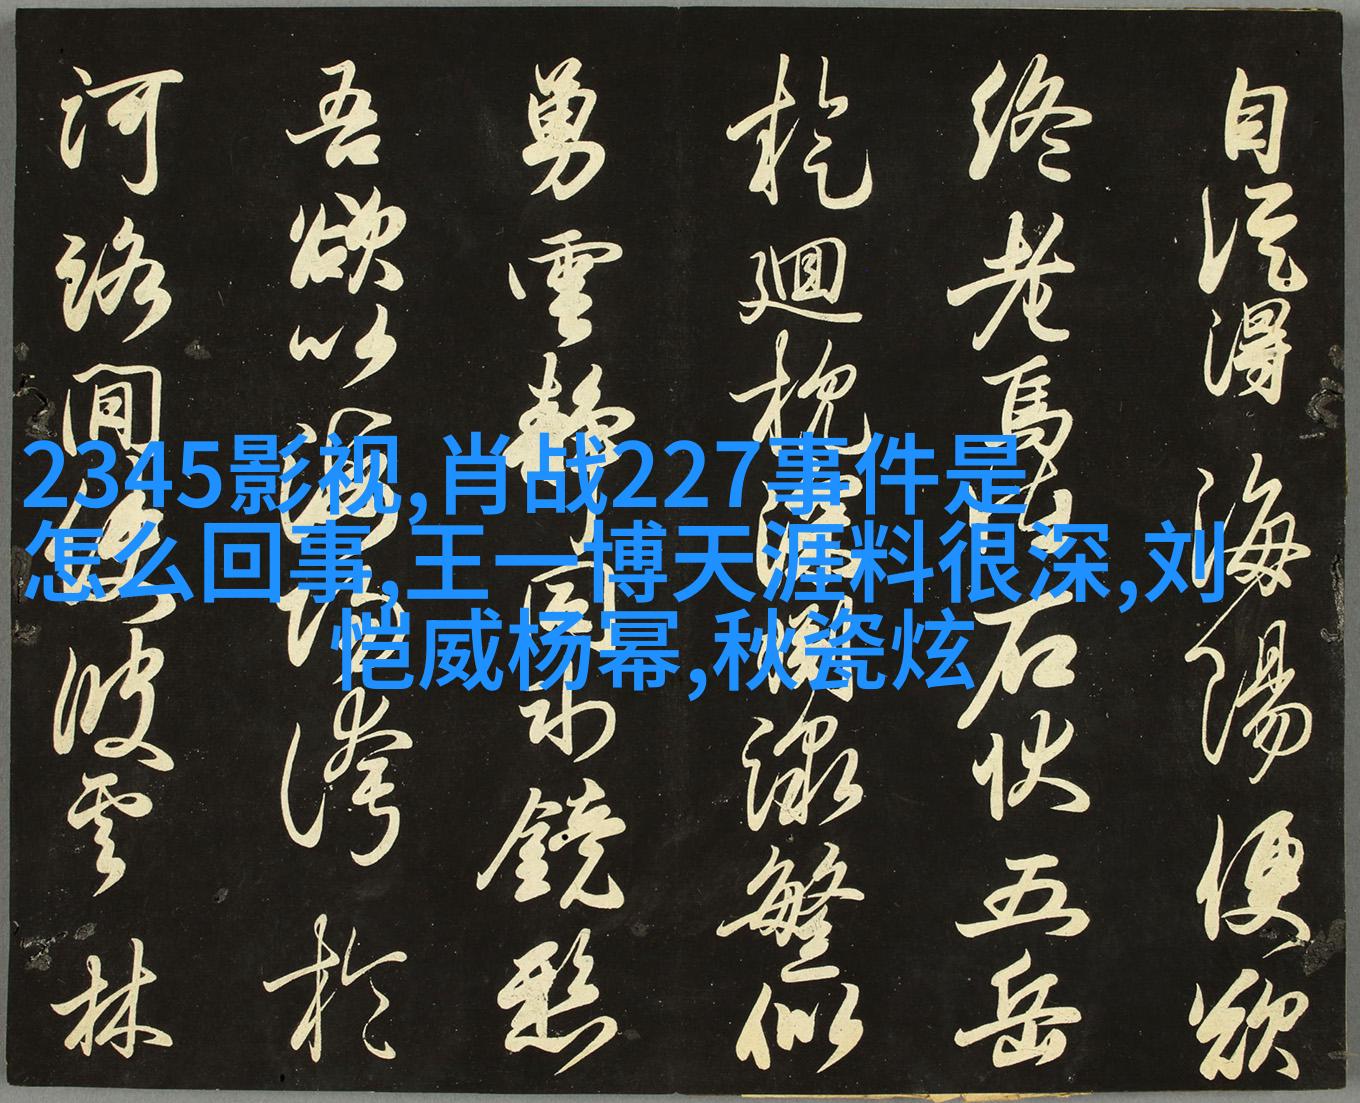 自從得海陽便欲
終老馬石伏五岳
迴枕繁似
勇雲靜同水鏡愁
吾欲以誇於
河路間波雲林
2345影视,肖战227事件是
怎么回事,王一博天涯料很深,刘
恺威杨幂,秋瓷炫